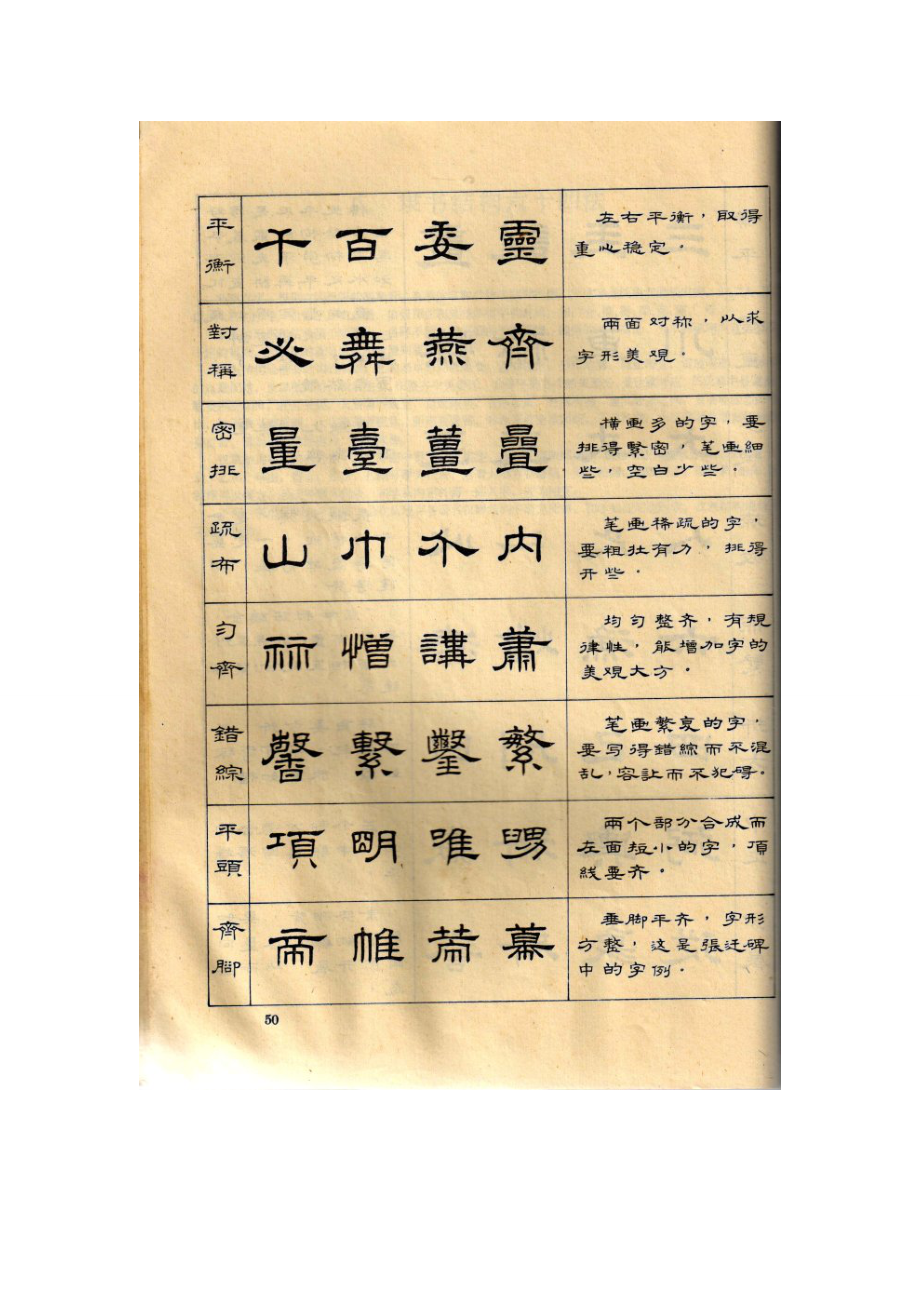 平衡
千百委靈
左右平衡，取得
重心稳定．
對稱
必舞燕齊
兩面对称，以求
字形美观．
密排
量臺薑疊
横画多的字，要
排得緊密，笔画细
些，空白少些．
疏布
山巾介内
笔画稀疏的字，
要粗壮有力，排得
开些．
匀齊
憎講蕭
均匀整齐，有規
律性，能增加字的
美观大方．
錯綜
馨繫鑿繁
笔画繁复的字，
要写得錯綜而不混
乱，容让而不犯碍．
平頭
項明唯
兩个部分合成而
左面短小的字，頂
线要齐．
齊腳
帝帷幕
垂脚平齐，字形
方整，这是張迁碑
中的字例．
50